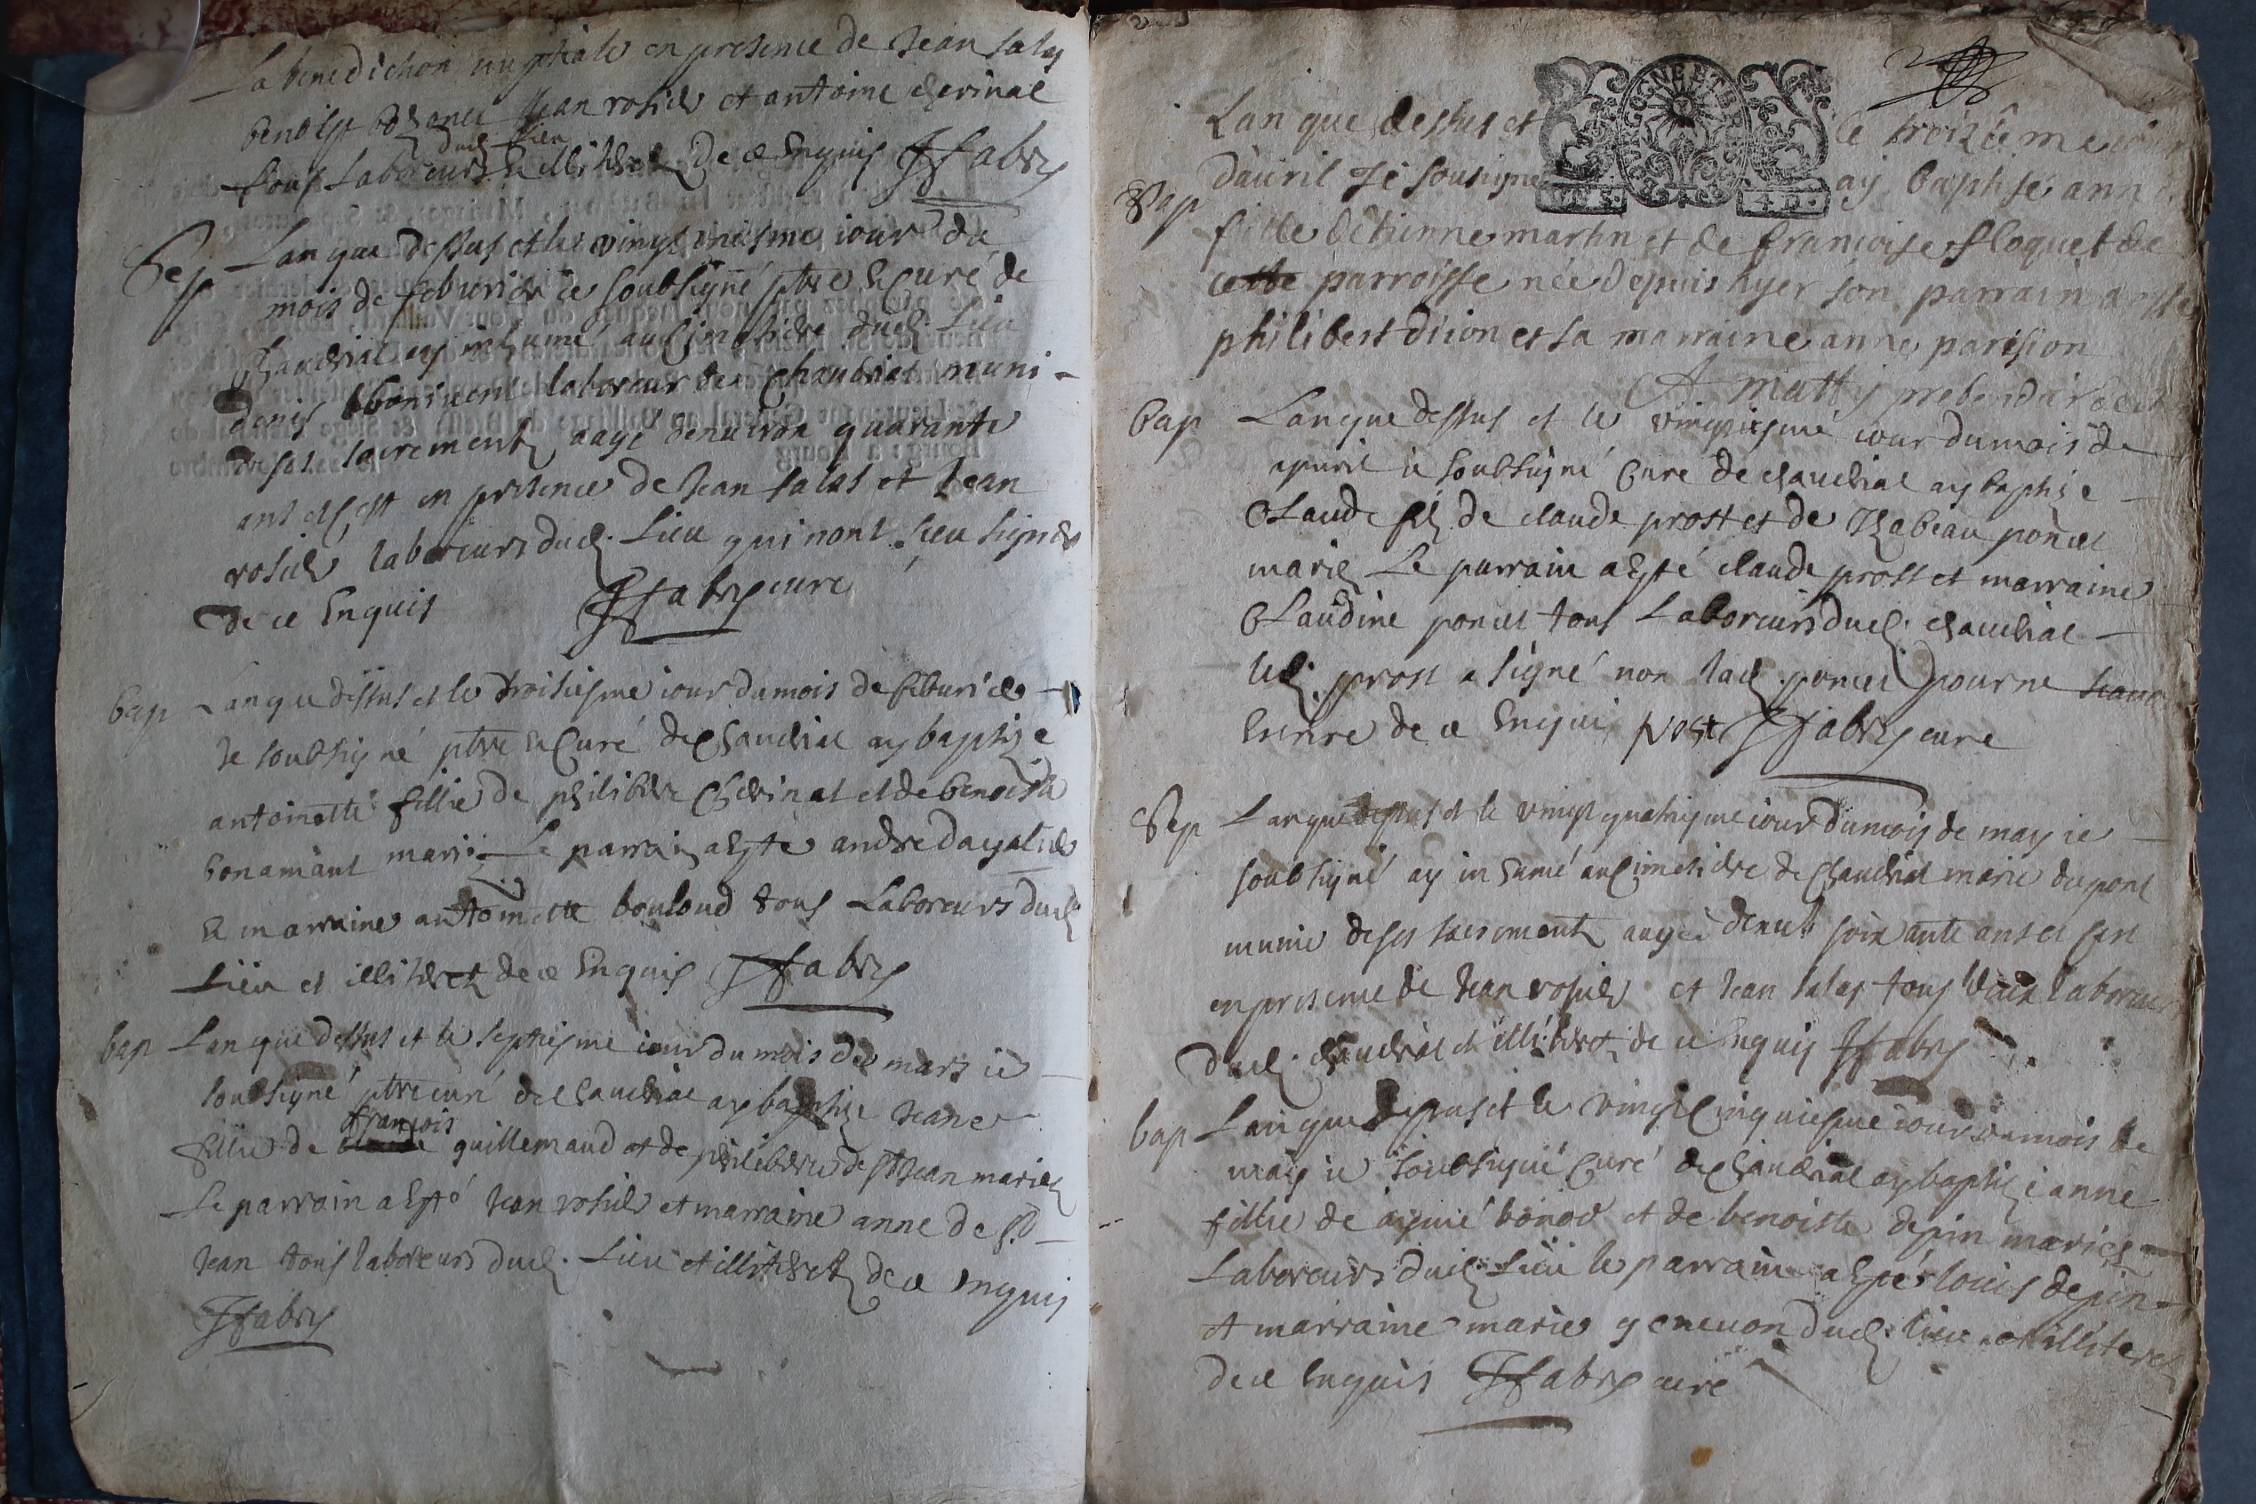 La benediction nuptiale en presence de Jean Salas
benoist Jean rosier et antoine chevinat
dud. lieu
tous laboreurs & illiteres de ce Enquis JFabry
Sep Lan que dessus et le vingt uniesme iour du
mois de feburier ie soubsigné ptre & curé de
Chaudriat ay inhumé au cimetiere dud. Lieu
denis laboreur de Chaudriat muni
de ses sacrements aagé denuiron quarante
ans et est en presence de Jean Salas et Jean
rosier laboreurs dud. Lieu qui nont sceu signer
de ce Enquis JFabry curé
bap Lan que dessus et le troisiesme iour du mois de feburier
Je soubsigné ptre & Curé de Chaudriat ay baptizé
antoinette fillie de philibert Chevinat et de benoiste
bonamant mariez Le parrain a Esté andre dagalier
& marraine antoinette bouloud tous Laboreurs dud.
Lieu et illiteret de ce Enquis JFabry
bap Lan que dessus et le septiesme iour du mois de mars ie
soubsigné ptre curé de Chaudriat ay baptizé Jeane
françois
fillie de guillemaud et de philiberte de St Jean mariez
Le parrain a Esté Jean rosier et marraine anne de St
Jean tous laboreurs dud. Lieu et illiteret de ce Enquis
JFabry
Lan que dessus et le troizieme iour
BOURGOGNE ET BRESSE
4 D.
Bap dauril Je sousigné ay baptisé anne
fille détienne martin et de francoise floquet de
cette parroisse née depuis hyer son parrain a esté
philibert diion et sa marraine anne parision
A matty prebendar
bap Lan que dessus et le vingtiesme iour du mois de
apuril ie soubsigné Curé de chaudriat ay baptizé
Claude filz de claude prost et de Izabeau poncet
mariez Le parrain a Esté claude prost et marraine
Claudine poncet tous Laboreurs dud. chaudriat
led. prost a signé non lad. poncet pour ne scauoir
Escrire de ce Enquis prost JFabry curé
Sep Lan que dessus et le vingt quatriesme iour du mois de may ie
soubsigné ay inhumé au cimetiere de Chaudriat marie dupont
munie de ses sacrements aagée denuir soixante ans et est
en presence de Jean rosier et Jean Salas tous deux laboreurs
dud. chaudriat et illiteret de ce Enquis JFabry
bap Lan que dessus et le vingt cinquiesme iour du mois de
may ie soubsigné Curé de Chaudriat ay baptizé anne
fillie de aymé bonod et de benoiste depin mariez
Laboreurs dud. Lieu le parrain a Esté louis depin
et marraine marie geneuon dud. lieu et illiteret
de ce Enquis JFabry curé